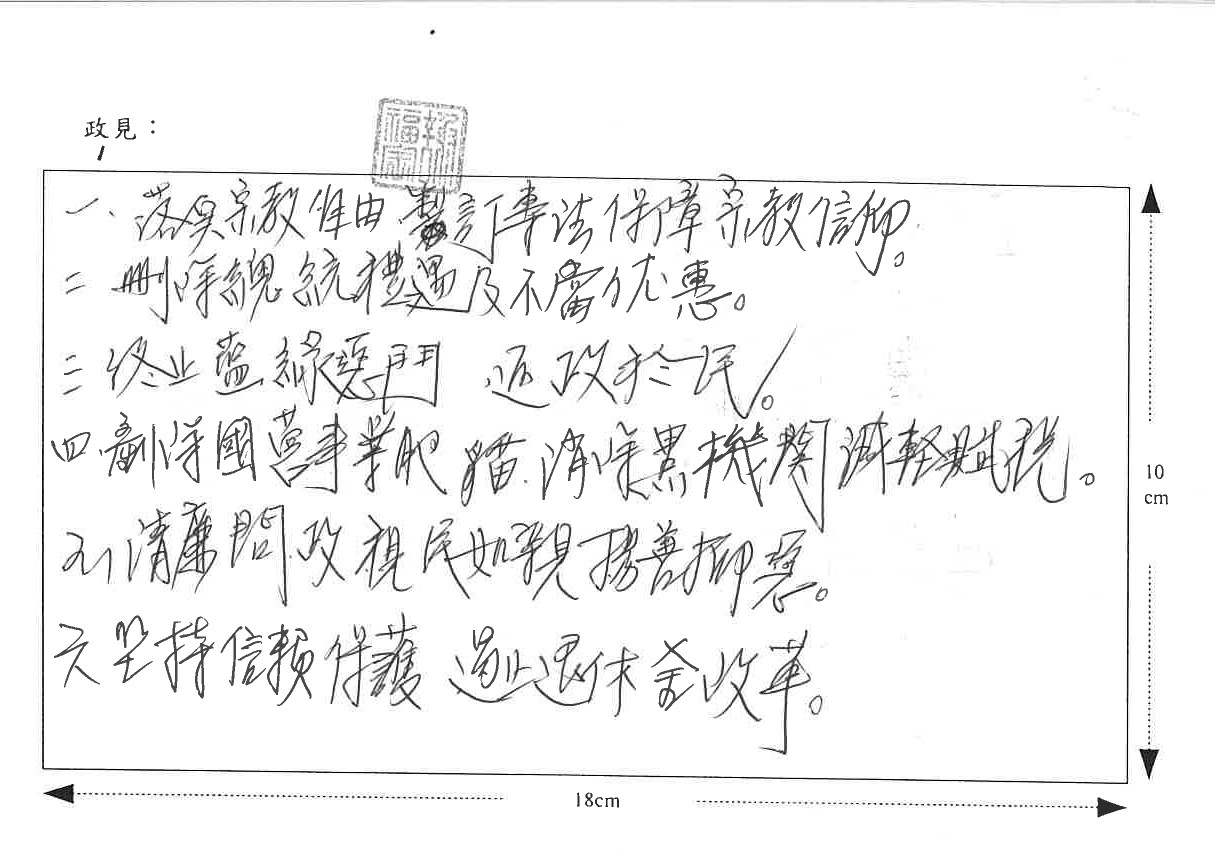 政見：
一、落實宗教自由、製訂專法保障宗教信仰。
二 刪除總統禮遇及不當优惠。
三 終止藍綠惡鬥 返政於民。
四、刪除國營事業肥貓、清除黑機關減輕賦稅。
五、清廉問政視民如親揚善抑惡。
六 坚持信賴保護 遏止退休金改革。
10
cm
18cm